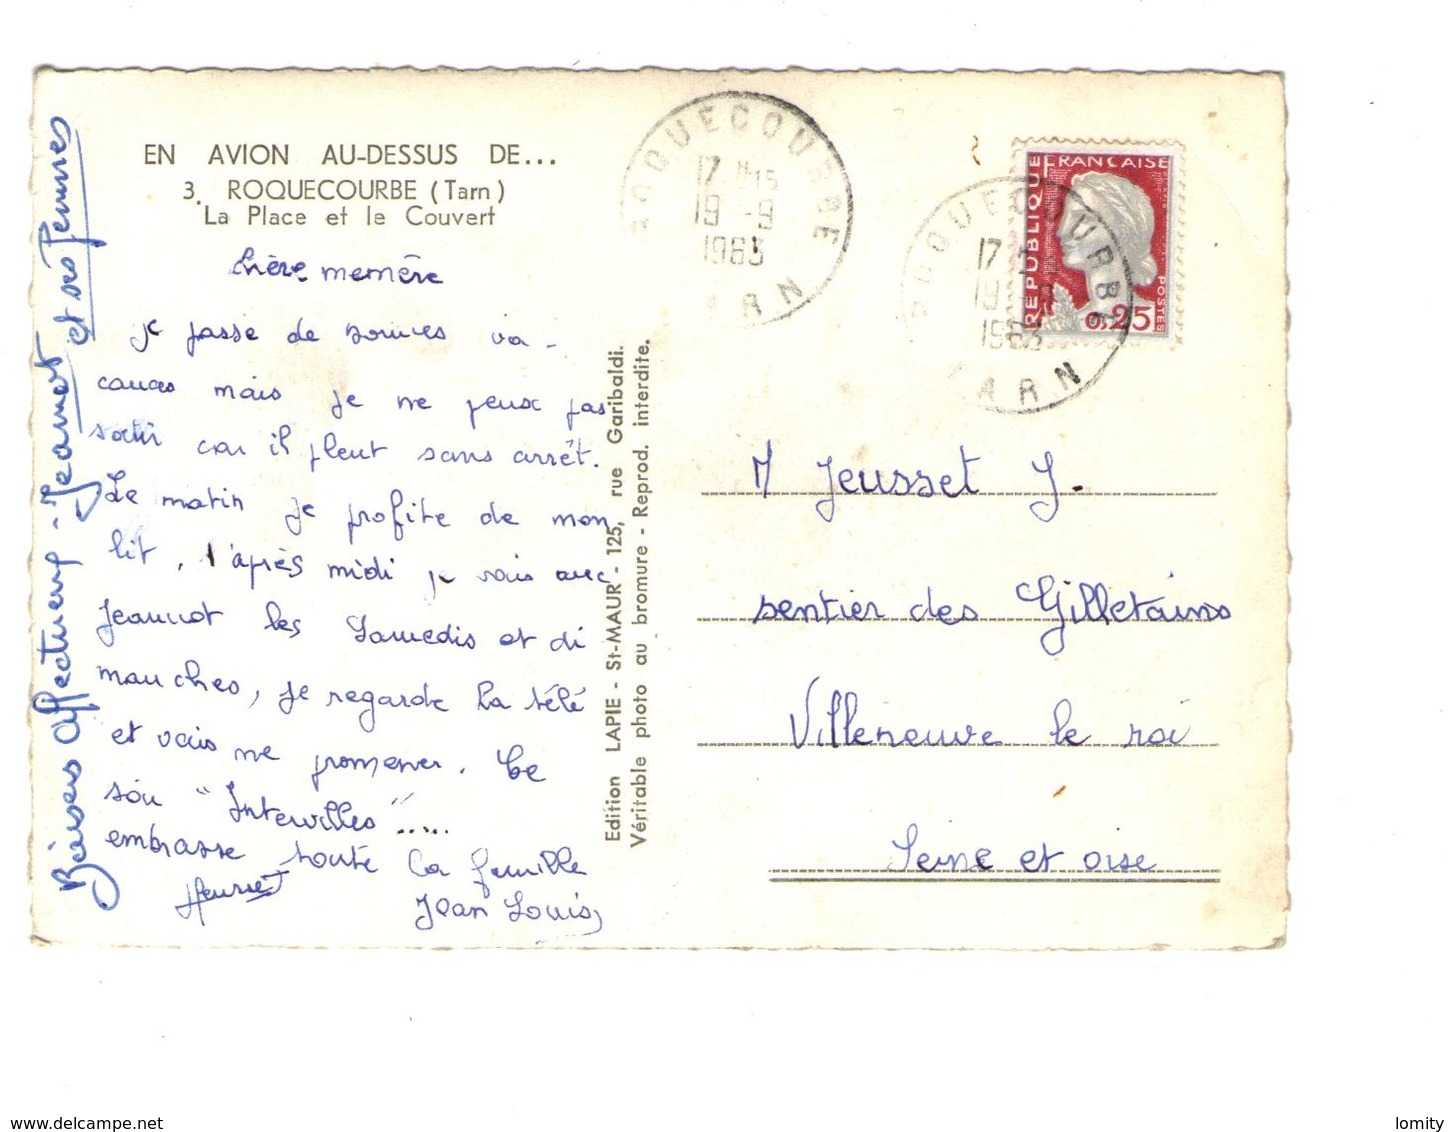 EN AVION AU-DESSUS DE...
3. ROQUECOURBE (Tarn)
La Place et le Couvert
chère memère
je passe de bonnes va-
cances mais je ne peux pas
sortir car il pleut sans arrêt.
Le matin je profite de mon
lit, l'après midi je vais avec
Jeannot les Samedis et di
manches, je regarde la télé
et vais me promener. Ce
soir "Intervilles" .....
embrasse toute la famille
Jean Louis
Baisers affectueux - Jeannot et ses femmes
Edition LAPIE - St-MAUR - 125, rue Garibaldi.
Véritable photo au bromure - Reprod. interdite.
ROQUECOURBE
17 H 15
19 -9
1963
TARN
ROQUECOURBE
17 H
19 -9
1963
TARN
REPUBLIQUE FRANCAISE
POSTES
0,25
M Jeusset J.
sentier des Gilletains
Villeneuve le roi
Seine et oise
delcampe.net
lomity